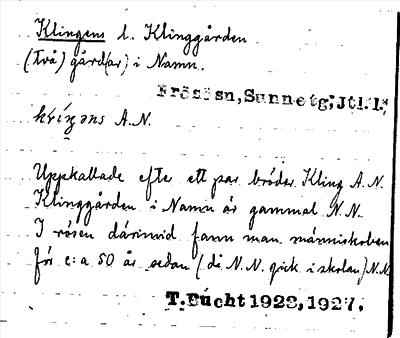 Klingens l. Klinggården
(två) gård(ar) i Namn.
Frösösn, Sunnetg, Jtl.l.
A.N.
Uppkallade efte ett par bröder Kling A.N.
Klinggården i Namn är gammal N.N.
I rösen därinvid fann man människoben
för c:a 50 år sedan (då N.N. gick i skolan) N.N.
T. Bucht 1928, 1927.